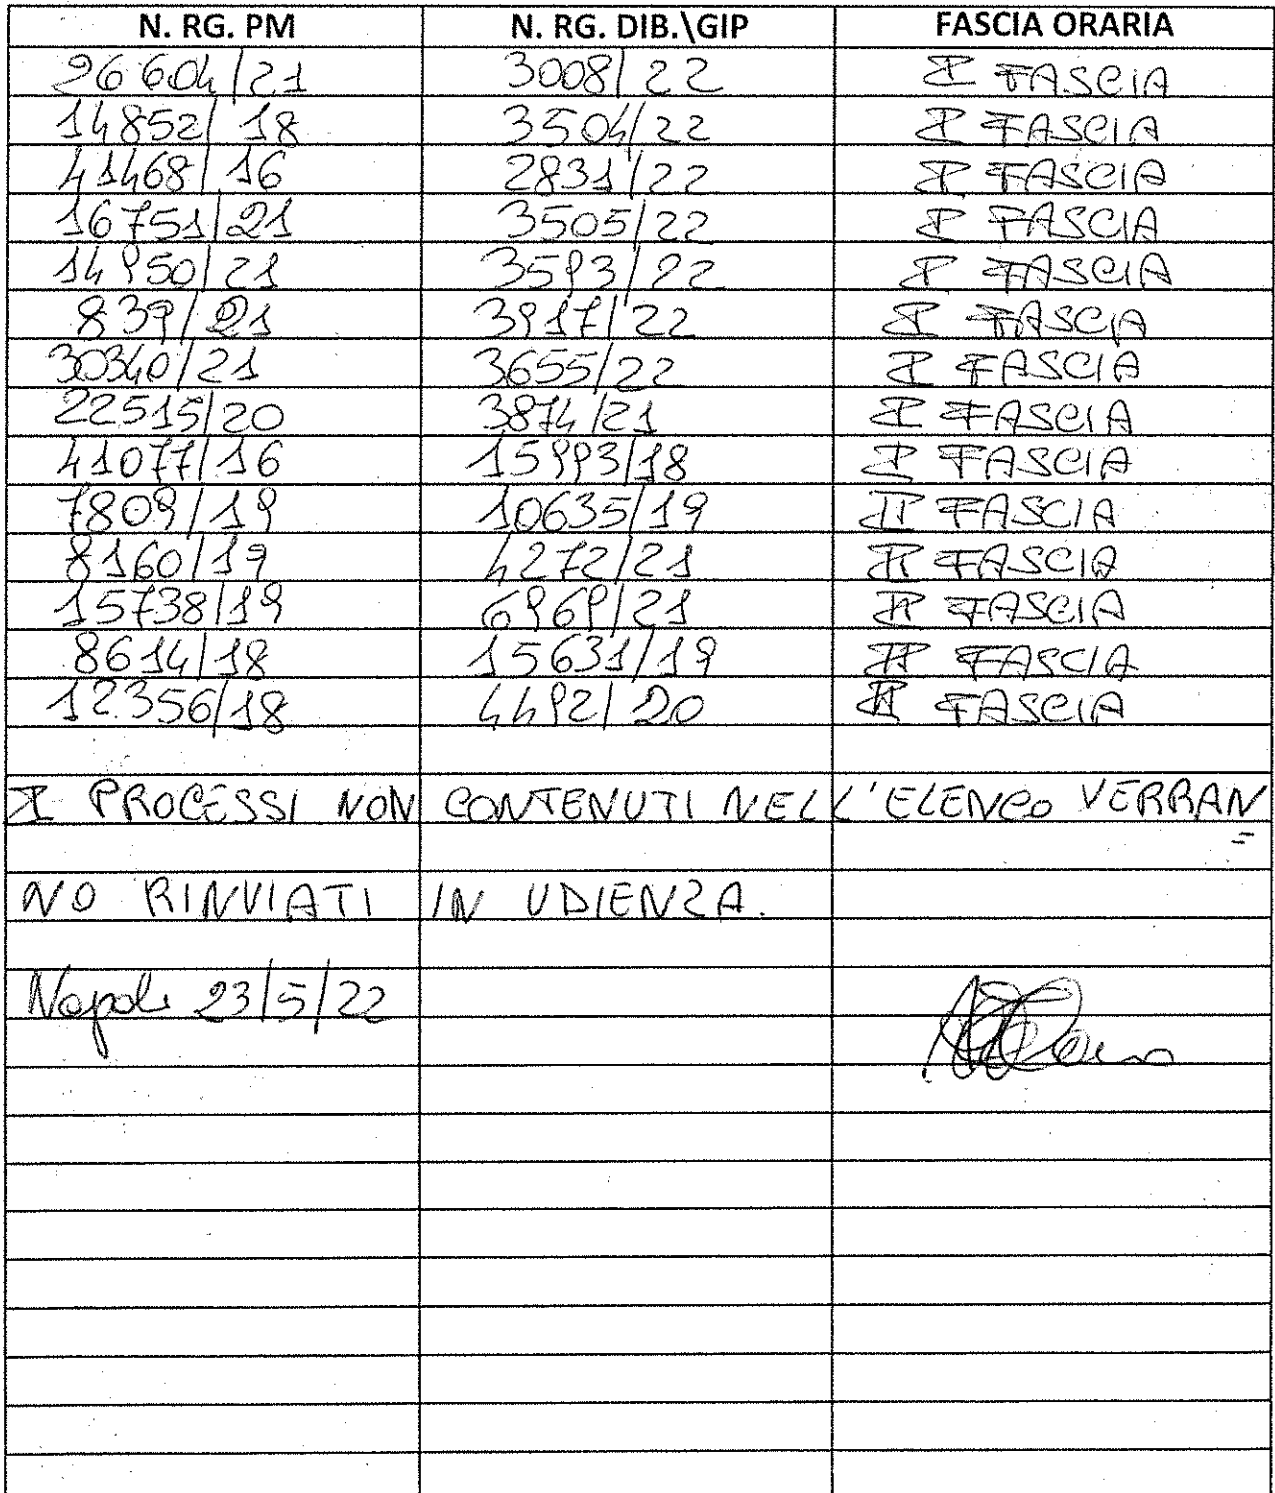 N. RG. PM N. RG. DIB.\GIP FASCIA ORARIA
26604/21 3008/22 I FASCIA
14852/18 3504/22 I FASCIA
41468/16 2831/22 I FASCIA
16751/21 3505/22 I FASCIA
14950/21 3593/22 I FASCIA
839/21 3917/22 I FASCIA
30340/21 3655/22 I FASCIA
22515/20 3874/21 I FASCIA
41077/16 15993/18 I FASCIA
7809/19 10635/19 II FASCIA
8160/19 4272/21 II FASCIA
15738/19 6969/21 II FASCIA
8614/18 15631/19 II FASCIA
12356/18 4492/20 II FASCIA
I PROCESSI NON CONTENUTI NELL'ELENCO VERRAN=
NO RINVIATI IN UDIENZA.
Napoli 23/5/22